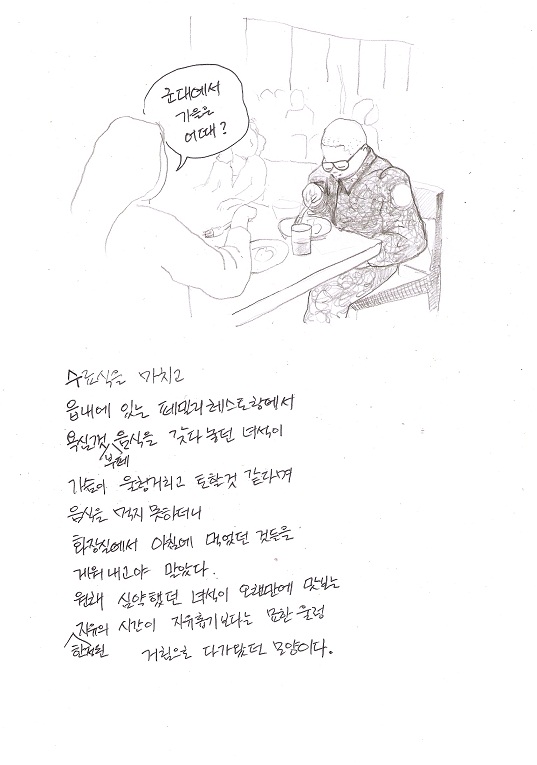 군대에서
가을은
어때?
수료식을 마치고
읍내에 있는 패밀리 레스토랑에서
욕심껏 음식을 갖다 놓던 녀석이
부페
가슴이 울렁거리고 토할것 같다며
음식을 먹지 못하더니
화장실에서 아침에 먹었던 것들을
게워내고야 말았다.
원래 쇠약했던 녀석이 오랜만에 맛보는
자유의 시간이 자유롭기보다는 묘한 울렁
한정된 거림으로 다가왔던 모양이다.